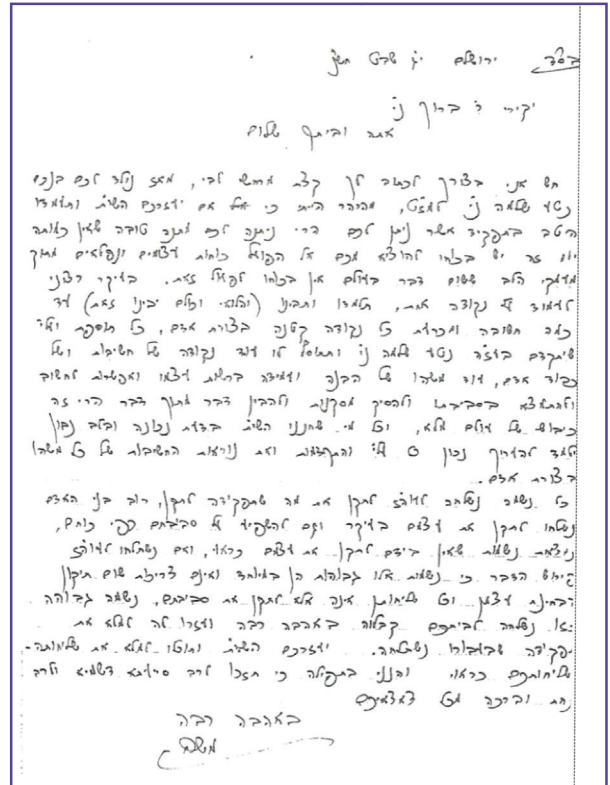 בס"ד ירושלים י"ג שבט
יקירי ר' ברוך נ"י
אתה וביתך שלום
חש אני בצורך לכתוב לך קצת מרחשי לבי, מאז נולד לכם בנכם
נטע שלמה נ"י למזט, מהרהר הייתי כי אם יעזרכם השי"ת ותעמדו
היטב בתפקיד אשר ניתן לכם הרי ניתנה לכם מתנה טובה שאין כמותה
זה יש בכוחו להוציא מכם אל הפועל כוחות עצומים ונפלאים מתוך
מעמקי הלב ששום דבר בעולם אין בכוחו לפעול זאת. בעיקר רצוני
לעמוד על נקודה אחת, תלמדו ותבינו (והלואי וכולם יבינו זאת) עד
כמה חשובה ומכרעת כל נקודה קטנה בצורת אדם, כל תוספת
שיתקדם בעז"ה נטע שלמה נ"י ותתוסף לו עוד נקודה של חשיבות ושל
כבוד אדם, עוד משהו של הבנה ועמידה ברשות עצמו ואפשרות לחשוב
ולהתמצא בסביבתו ולהסיק מסקנות ולהבין דבר מתוך דבר הרי זה
כיבוש של עולם מלא, וכל מי שחננו השי"ת בדעת נכונה ובלב נבון
ילמד להעריך נכון כל שלב והתקדמות ואת נוראות החשיבות של כל משהו
בצורת אדם.
כל נשמה נשלחה לעוה"ז לתקן את מה שתפקידה לתקן, רוב בני האדם
נשלחו לתקן את עצמם בעיקר וגם להשפיע על סביבתם כפי כוחם,
נמצאות נשמות שאין בידם לתקן את עצמם כראוי, ואם נשתלחו לעוה"ז
פירוש הדבר כי נשמות אלו גבוהות הן במיוחד ואינם צריכות שום תיקון
מבחינת עצמן וכל שליחותן אינה אלא לתקן את סביבתם, נשמה גבוהה
זו נשלחה לביתכם קבלוה באהבה רבה ועזרו לה למלא את
תפקידה שבעבורו נשתלחה. יעזרכם השי"ת ותוכלו למלא את שליחותה-
שליחותכם כראוי. והנני בתפילה כי תזכו לרב סייעתא דשמיא ולרב
נחת וברכה מכל צאצאיכם
באהבה רבה